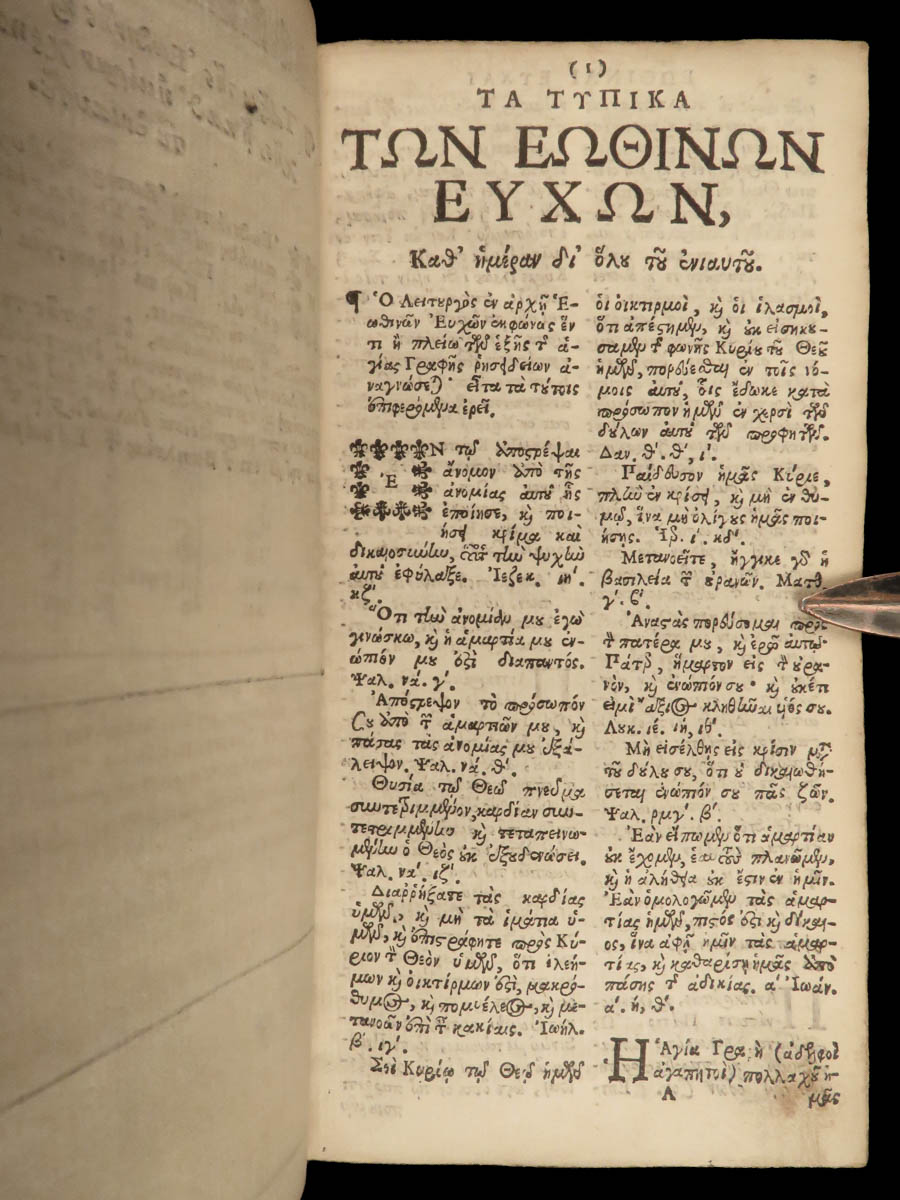 (1)
ΤΑ ΤΥΠΙΚΑ
ΤΩΝ ΕΩΘΙΝΩΝ
ΕΥΧΩΝ,
Καθ' ἡμέραν δι' ὅλου τοῦ ἐνιαυτοῦ.
¶ Ὁ Λειτυργὸς ἐν ἀρχῇ Ἑ-
ωθινῶν Ἐυχῶν ἐκφώνας ἕν
τι ἢ πλείω τῶν ἑξῆς τ̂ ἁ-
γίας Γραφῆς ῥησειδείων ἀ-
ναγνώσε) εἶτα τὰ τύτοις
ἐπιφερόμενα ἐρεῖ.
ἘΝ τῳ ἀποστρέψαι
ἄνομον ἀπὸ τῆς
ἀνομίας αὐτȣ ἧς
ἐποίησε, κ̀ ποι-
ήσῃ κρίμα καὶ
δικαιοσύνην, οὗτος τὴν ψυχὴν
αὐτȣ ἐφύλαξε. Ἰεζεκ. ιη'.
κζ'.
Ὅτι τὴν ἀνομίαν μȣ ἐγὼ
γινώσκω, κ̀ ἡ ἁμαρτία μȣ ἐν-
ώπιόν μȣ ἐστὶ διαπαντός.
Ψαλ. νά. γ'.
Ἀπόστρεψον τὸ πρόσωπόν
σȣ ἀπὸ τ̂ ἁμαρτιῶν μȣ, κ̀
πάσας τὰς ἀνομίας μȣ ἐξά-
λειψον. Ψαλ. νά. θ'.
Θυσία τῳ Θεῳ πνεῦμα
συντετριμμένον, καρδίαν συν-
τετριμμένην κ̀ τεταπεινω-
μένην ὁ Θεὸς ȣκ ἐξουδενώσει.
Ψαλ. να'. ιζ'.
Διαρρήξατε τὰς καρδίας
ὑμῶν, κ̀ μὴ τὰ ἱμάτια ὑ-
μῶν, κ̀ ἐπιστράφητε πρὸς Κύ-
ριον τ̂ Θεὸν ὑμῶν, ὅτι ἐλεή-
μων κ̀ οἰκτίρμων ἐστὶ, μακρό-
θυμος, κ̀ πολυέλεος, κ̀ με-
τανοῶν ἐπὶ τ̂ κακίαις. Ἰωήλ.
β'. ιγ'.
Σοὶ Κυρίῳ τῳ Θεῳ ἡμῶν
οἱ οἰκτιρμοὶ, κ̀ οἱ ἱλασμοὶ,
ὅτι ἀπέστημεν, κ̀ ȣκ εἰσηκȣ-
σαμεν τ̂ φωνῆς Κυρίȣ τȣ Θεȣ
ἡμῶν, πορεύεσθαι ἐν τοῖς νό-
μοις αὐτȣ, οἷς ἔδωκε κατὰ
πρόσωπον ἡμῶν ἐν χερσὶ τῶν
δȣλων αὐτȣ τῶν προφητῶν.
Δαν. θ'. θ', ί.
Παίδευσον ἡμᾶς Κύριε,
πλὴν ἐν κρίσει, κ̀ μὴ ἐν θυ-
μῳ, ἵνα μὴ ὀλίγȣς ἡμᾶς ποι-
ήσῃς. Ἱερ. ί. κδ'.
Μετανοεῖτε, ἤγγικε γὰρ ἡ
βασιλεία τ̂ ȣρανῶν. Ματθ.
γ'. β'.
Ἀναστὰς πορεύσομαι πρὸς
τ̂ πατέρα μȣ, κ̀ ἐρῶ αὐτῳ·
Πάτερ, ἥμαρτον εἰς τ̂ ȣρα-
νὸν, κ̀ ἐνώπιόν σȣ· κ̀ ȣκέτι
εἰμὶ ἄξιος κληθῆναι υἱός σȣ.
Λȣκ. ιέ. ιή, ιθ'.
Μὴ εἰσέλθῃς εἰς κρίσιν μετὰ
τȣ δȣλȣ σȣ, ὅτι ȣ δικαιωθή-
σεται ἐνώπιόν σȣ πᾶς ζῶν.
Ψαλ. ρμγ'. β'.
Ἐὰν εἴπωμεν ὅτι ἁμαρτίαν
ȣκ ἔχομεν, ἑαυτοὺς πλανῶμεν,
κ̀ ἡ ἀλήθεια ȣκ ἔστιν ἐν ἡμῖν.
Ἐὰν ὁμολογῶμεν τὰς ἁμαρ-
τίας ἡμῶν, πιστός ἐστι κ̀ δίκαι-
ος, ἵνα ἀφῇ ἡμῖν τὰς ἁμαρ-
τίας, κ̀ καθαρίσῃ ἡμᾶς ἀπὸ
πάσης τ̂ ἀδικίας. α' Ἰωάν.
α'. ή, θ'.
Ἡ Ἁγία Γραφὴ (ἀδελφοὶ
ἀγαπητοὶ) πολλαχȣ ἡ-
Α μᾶς